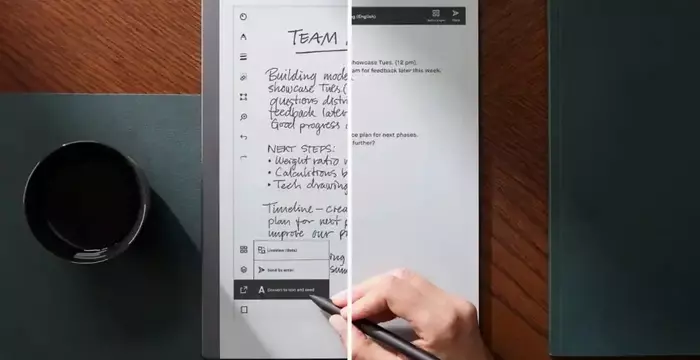 TEAM
Building mode
showcase Tues. (
questions distri
feedback later
Good progress
NEXT STEPS:
• Weight ratio
• Calculations b
• Tech drawing
Timeline – crea
plan for next p
improve our p
LiveView (Beta)
Send by email
Convert to text and send
ng (English)
howcase Tues. (12 pm).
am for feedback later this week.
ce plan for next phases.
further?